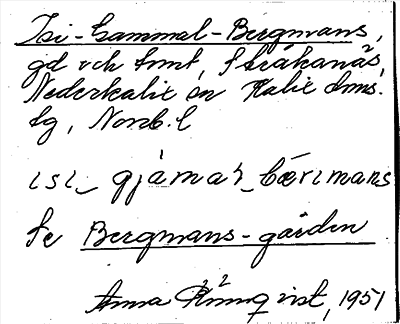 Isi-Gammal-Bergmans,
gd och tomt, Stråkanäs,
Nederkalix sn Kalix doms.
tg, Norrb. l
ɩsɩ_ gjámaʅ_bærɩmans
Se Bergmans-gården
Anna Rönnqvist, 1951